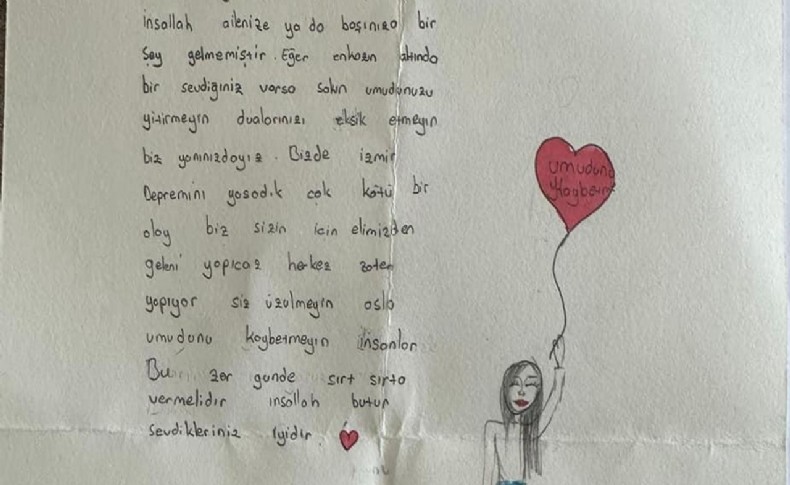 insallah ailenize ya da başınıza bir
Şey gelmemiştir. Eğer enkazın altında
bir sevdiğiniz varsa sakın umudunuzu
yitirmeyin dualarınızı eksik etmeyin
biz yanınızdayız. Bizde izmir
Depremini yasadık cok kötü bir
olay biz sizin icin elimizden
geleni yapıcaz herkez zaten
yapıyor siz üzülmeyin asla
umudunu kaybetmeyin insanlar
Bu zor günde sırt sırta
vermelidir insallah butun
sevdikleriniz iyidir.
umudunu
Kaybetme